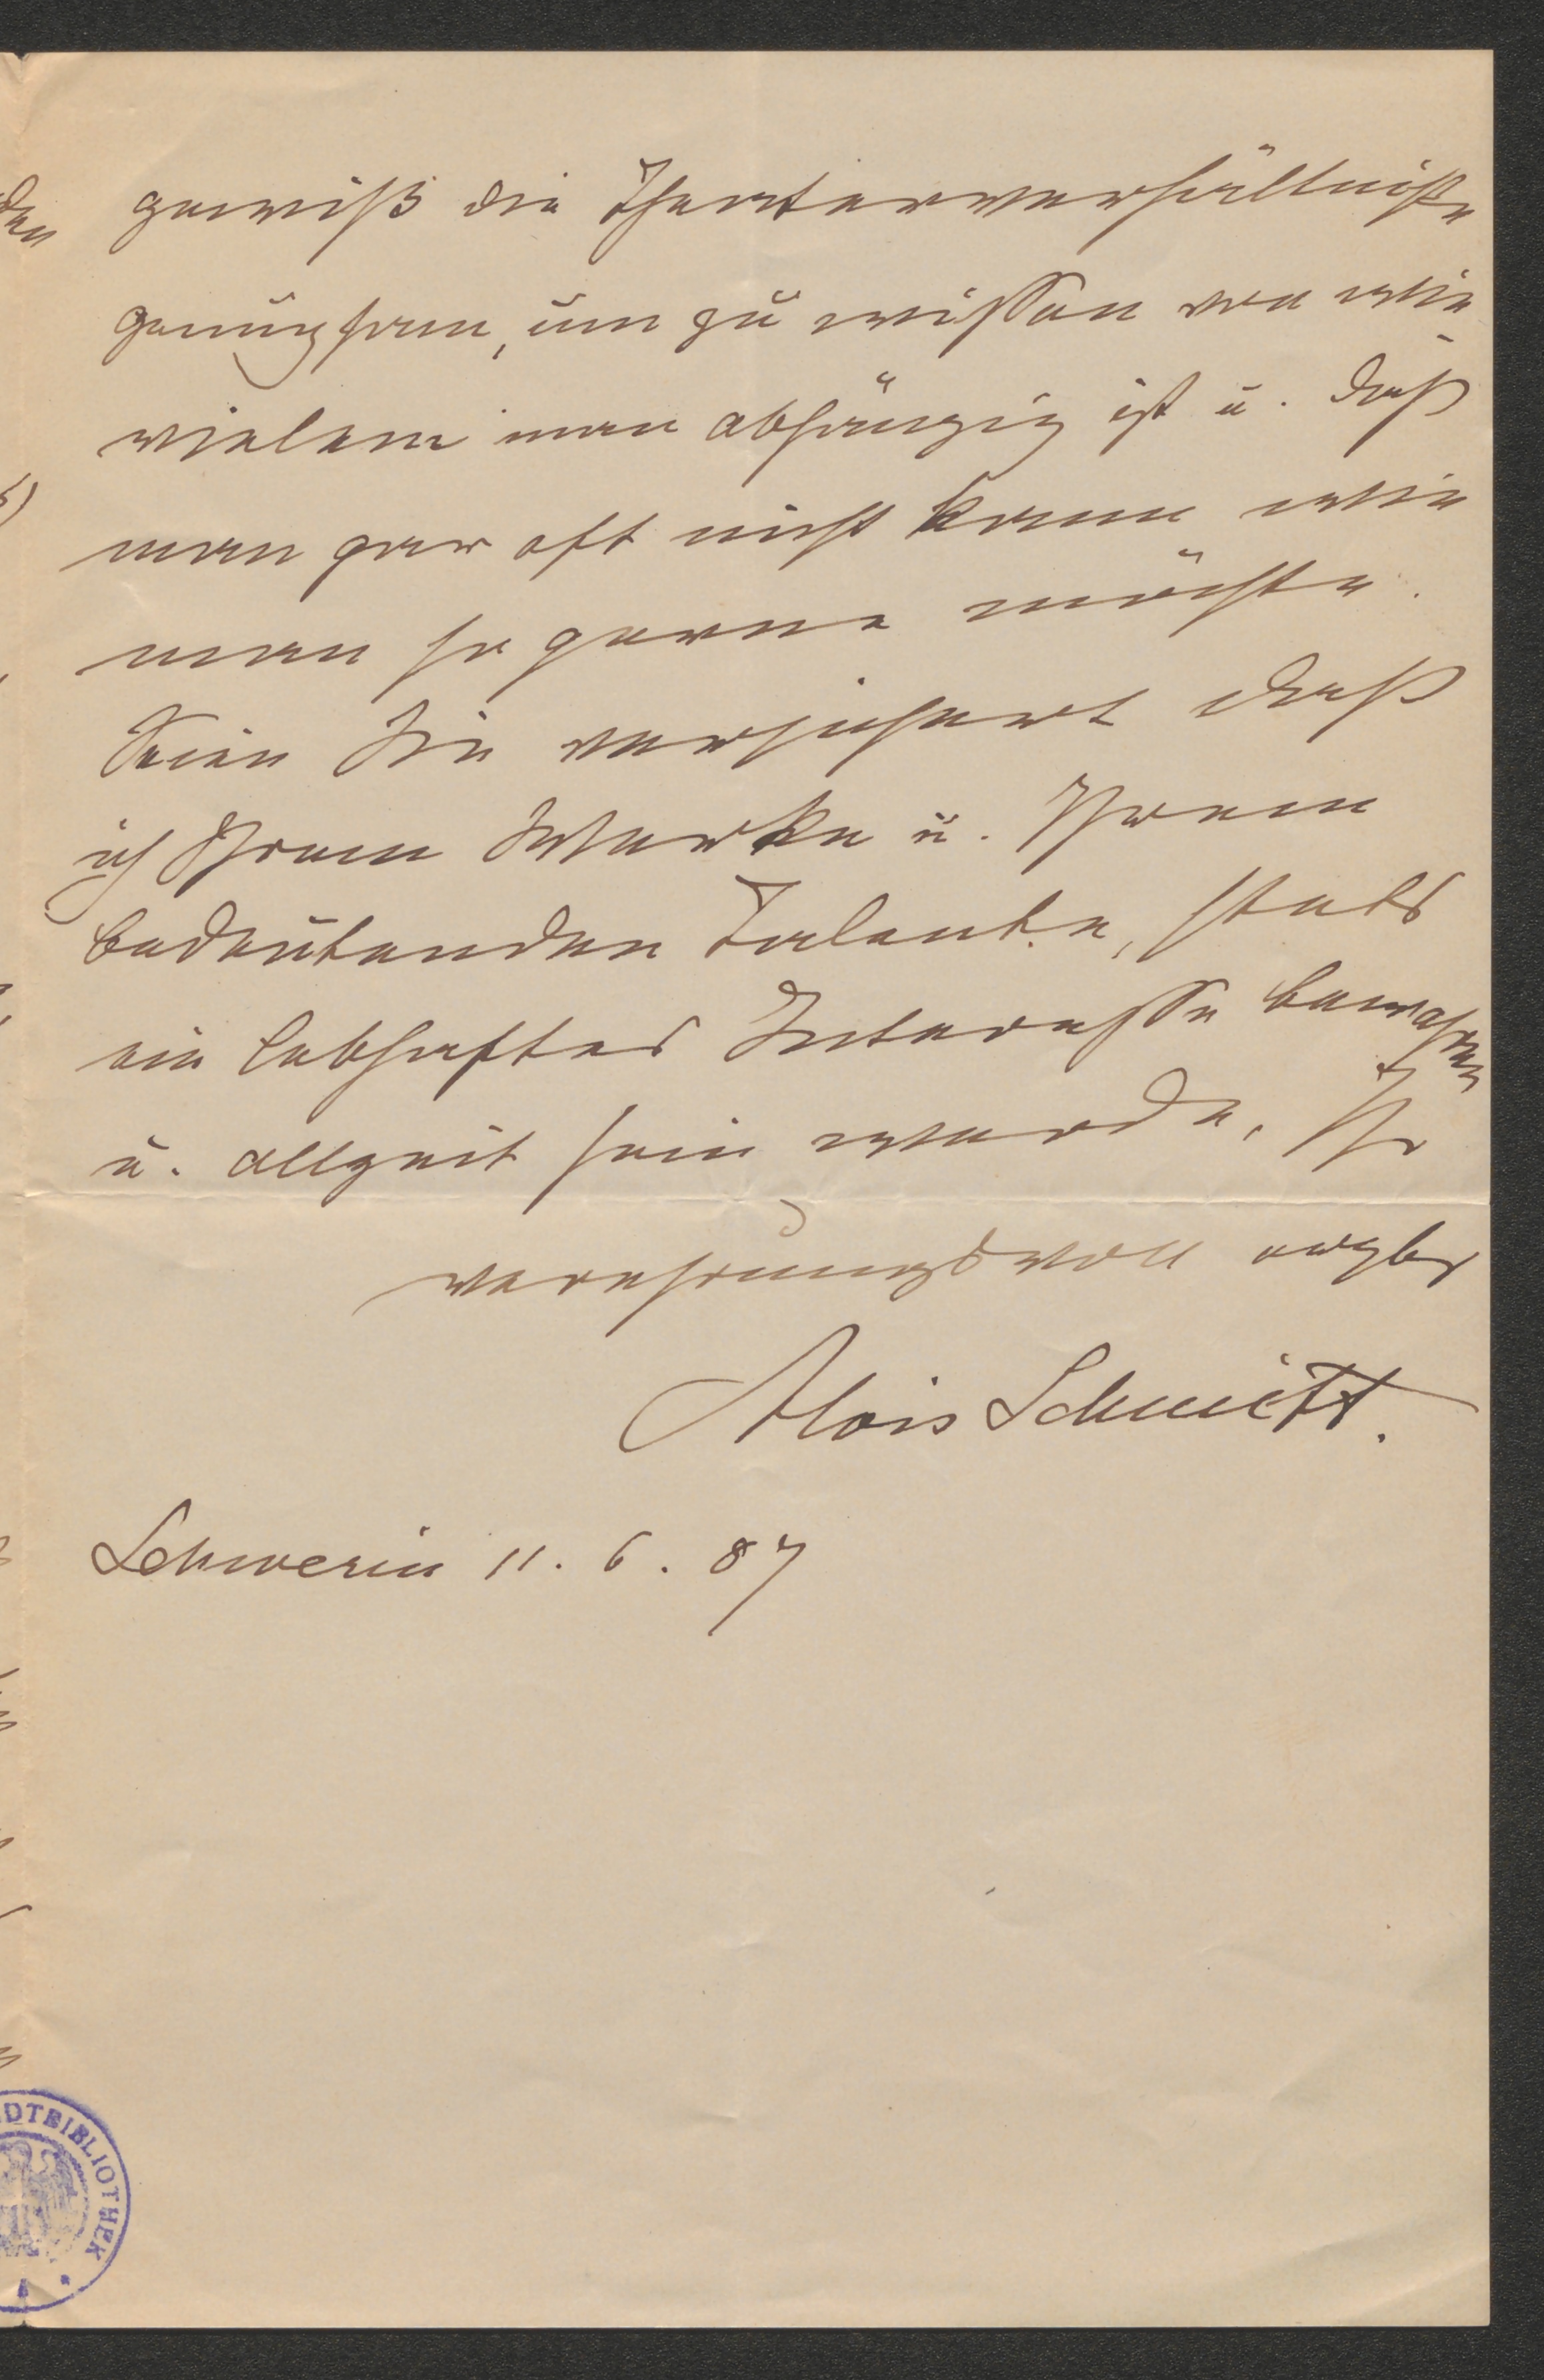 gewiß die Theaterverhältnisse
genugsam, um zu wissen von wie
vielem man abhängig ist u. daß
man gar oft nicht kann wie
man so gerne möchte.
Seien Sie versichert daß
ich Ihrem Werke u. Ihrem
bedeutenden Talente, stets
ein lebhaftes Interesse bewahren
u. allzeit sein werde, Ihr
verehrungsvoll ergbs
Alois Schmitt.
Schwerin 11. 6. 87
DTBIBLIOTHEK